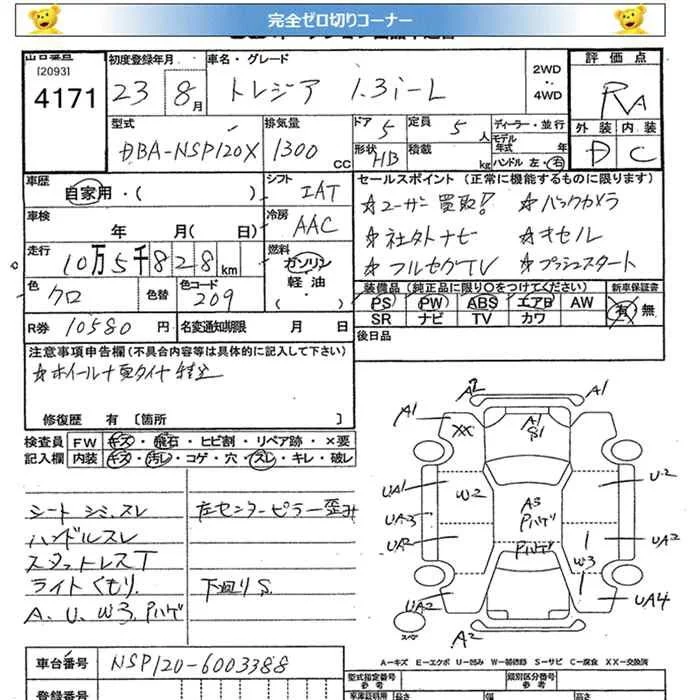 完全ゼロ切りコーナー
[2093]
4171
初度登録年月
23 8月
車名・グレード
トレジア 1.3i-L
2WD
4WD
評価点
RA
外装 内装
D C
型式
DBA-NSP120X
排気量
1300 CC
ドア 5
定員 5 人
形状 HB
積載 kg
ディーラー・並行
モデル年式 年
ハンドル 左・右
車歴
自家用・( )
シフト
IAT
車検
年 月( 日)
冷房
AAC
走行
10万5千828km
燃料
ガソリン
軽油
( )
色
クロ
色替
色コード
209
R券 10580円
名変通知期限 月 日
セールスポイント(正常に機能するものに限ります)
☆ユーザー買取! ☆バックカメラ
☆社外ナビ ☆キセル
☆フルセグTV ☆プッシュスタート
装備品(純正品に限り○をつけてください)
PS PW ABS エアB AW
SR ナビ TV カワ
新車保証書
有 無
後日品
注意事項申告欄(不具合内容等は具体的に記入して下さい)
修復歴 有 〔箇所 〕
検査員 FW キズ・飛石・ヒビ割・リペア跡・×要
記入欄 内装 キズ・汚レ・コゲ・穴・スレ・キレ・破レ
シート シミ、スレ
ハンドルスレ
スタットレスT
ライトくもり
A、U、W3、Pハゲ
左センターピラー歪み
下廻りS
A2 A1
A1 XX A1 S1
UA1 W2 U2
UA3 A3 Pハゲ
UA2 Pハゲ W3 UA2
UA2 UA4
スペア A2
A-キズ E-エクボ U-凹み W-補修跡 S-サビ C-腐食 XX-交換済
車台番号 NSP120-6003388
登録番号
型式指定番号
参考
類別区分番号
参考
車庫証明用
参考
長さ
幅
高さ